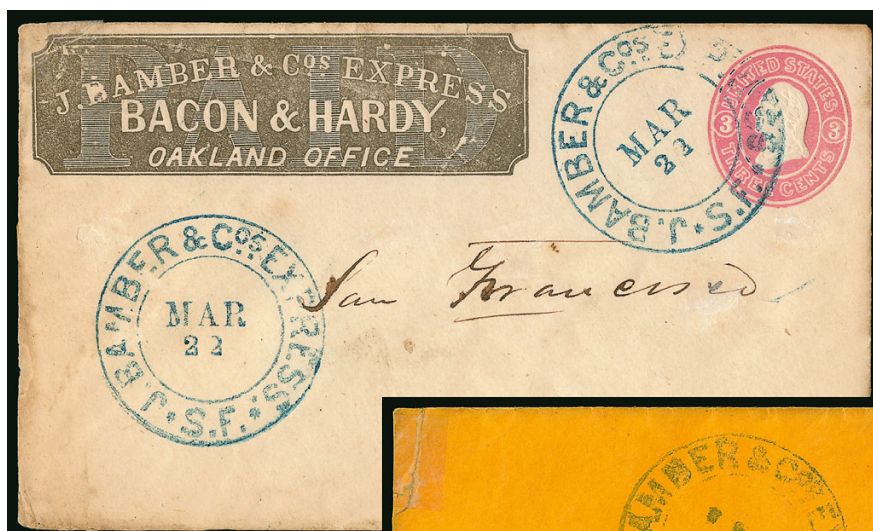 PAID
J. BAMBER & Cos EXPRESS
BACON & HARDY,
OAKLAND OFFICE
J. BAMBER & Cos
MAR
22
S.F.
UNITED STATES
3 3
THREE CENTS
J. BAMBER & Cos EXPRESS
MAR
22
S.F.
San Francisco
AMBER & Co